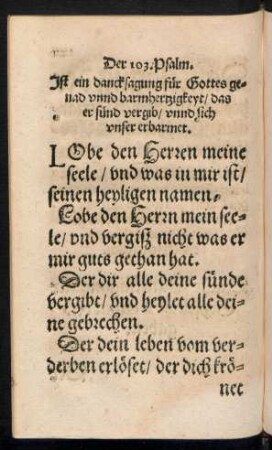 Der 103. Psalm.
Ist ein dancksagung für Gottes ge-
nad vnnd barmhertzigkeyt/ das
er sünd vergib/ vnnd sich
vnser erbarmet.
LObe den Herren meine
seele/ vnd was in mir ist/
seinen heyligen namen.
Lobe den Herrn mein see-
le/ vnd vergisz nicht was er
mir guts gethan hat.
Der dir alle deine sünde
vergibt/ vnd heylet alle dei-
ne gebrechen.
Der dein leben vom ver-
derben erlöset/ der dich krö-
net